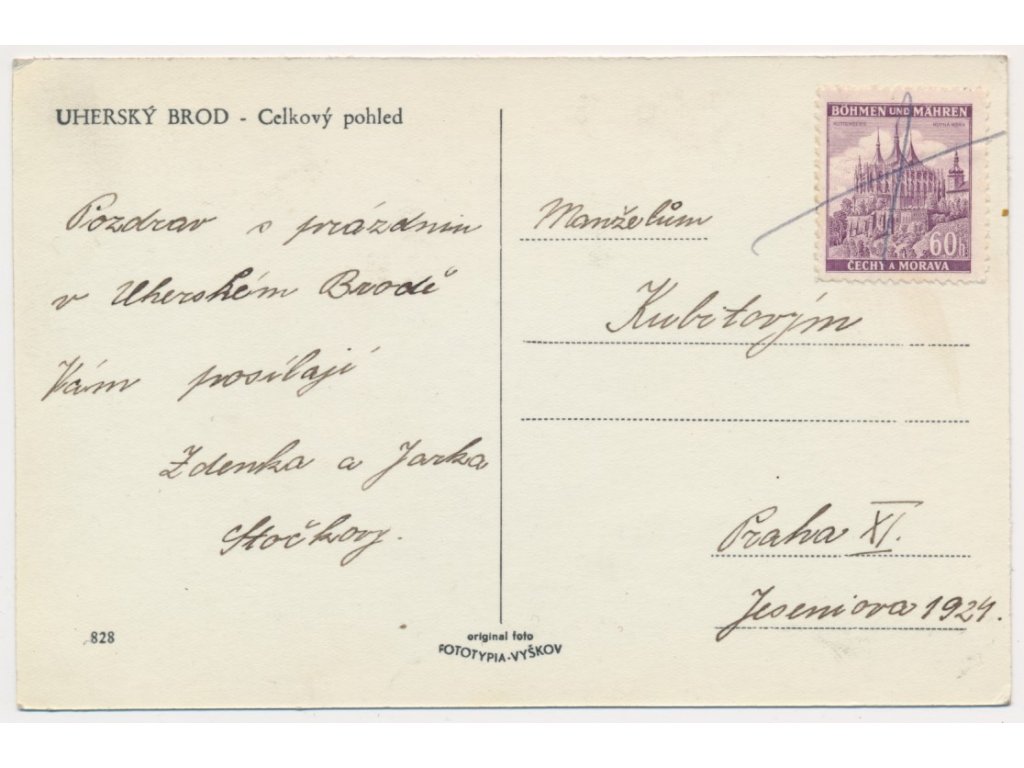 UHERSKÝ BROD - Celkový pohled
Pozdrav s prázdnin
v Uherském Brodě
Vám posílají
Zdenka a Jarka
Stočkovy.
828
original foto
FOTOTYPIA-VYŠKOV
BÖHMEN UND MÄHREN
KUTTENBERG KUTNÁ HORA
60h
ČECHY A MORAVA
Manželům
Kubitovým
Praha XI.
Jeseniova 1924.